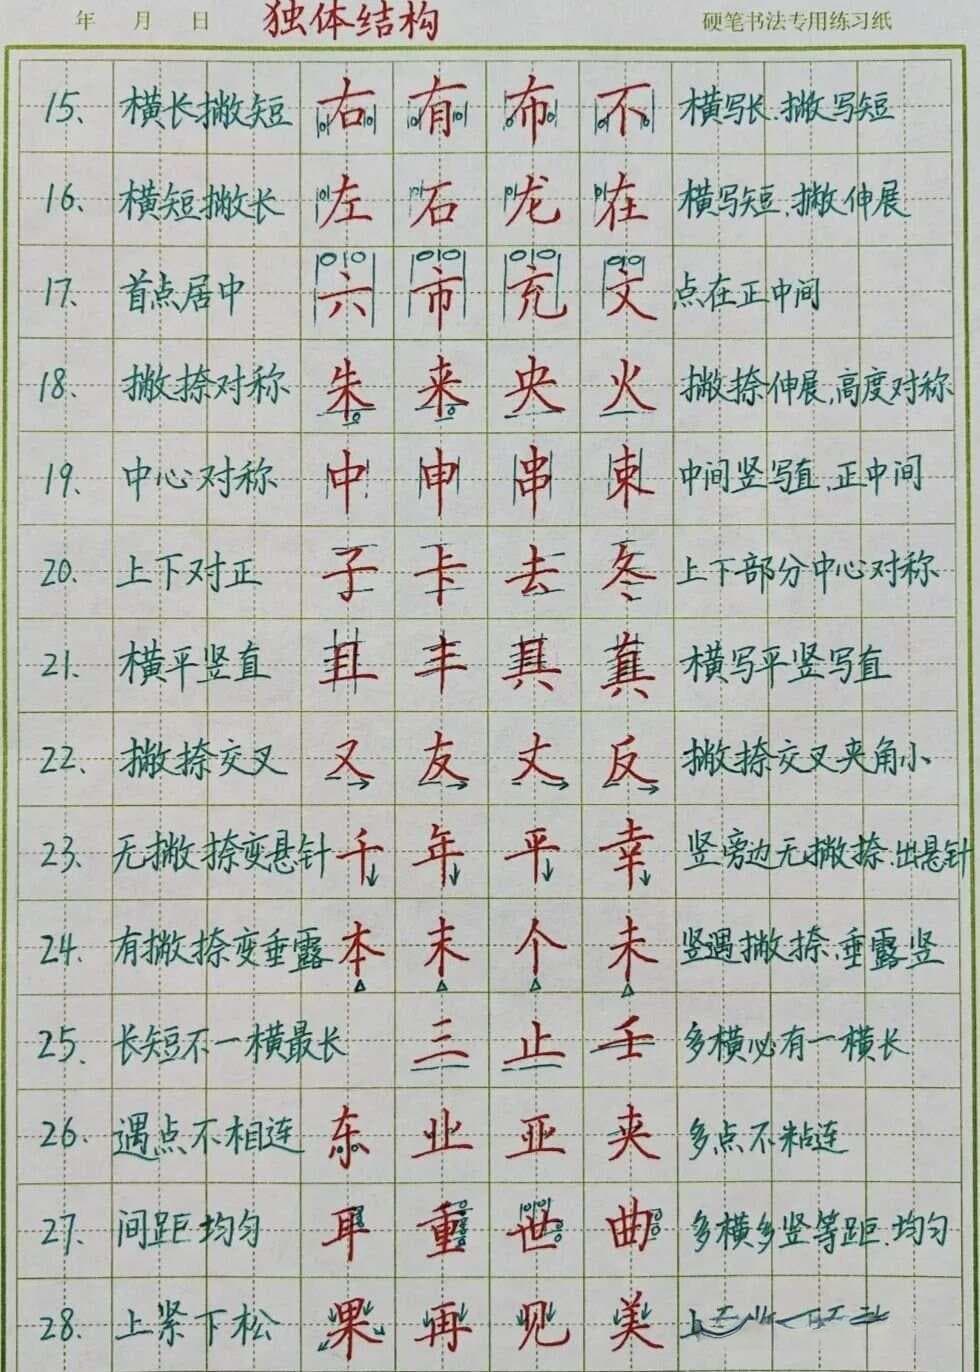 年 月 日 独体结构 硬笔书法专用练习纸
15、横长撇短 右 有 布 不 横写长.撇写短
16、横短撇长 左 石 龙 在 横写短、撇伸展
17、首点居中 六 市 充 文 点在正中间
18、撇捺对称 朱 来 央 火 撇捺伸展,高度对称
19、中心对称 中 申 串 束 中间竖写直,正中间
20、上下对正 子 卡 去 冬 上下部分中心对称
21、横平竖直 且 丰 具 真 横写平竖写直
22、撇捺交叉 又 友 丈 反 撇捺交叉夹角小
23、无撇捺变悬针 千 年 平 幸 竖旁边无撇捺.出悬针
24、有撇捺变垂露 本 末 个 未 竖遇撇捺.垂露竖
25、长短不一横最长 三 止 壬 多横必有一横长
26、遇点不相连 东 业 亚 夹 多点不粘连
27、间距均匀 耳 重 世 曲 多横多竖等距.均匀
28、上紧下松 果 再 见 美 上